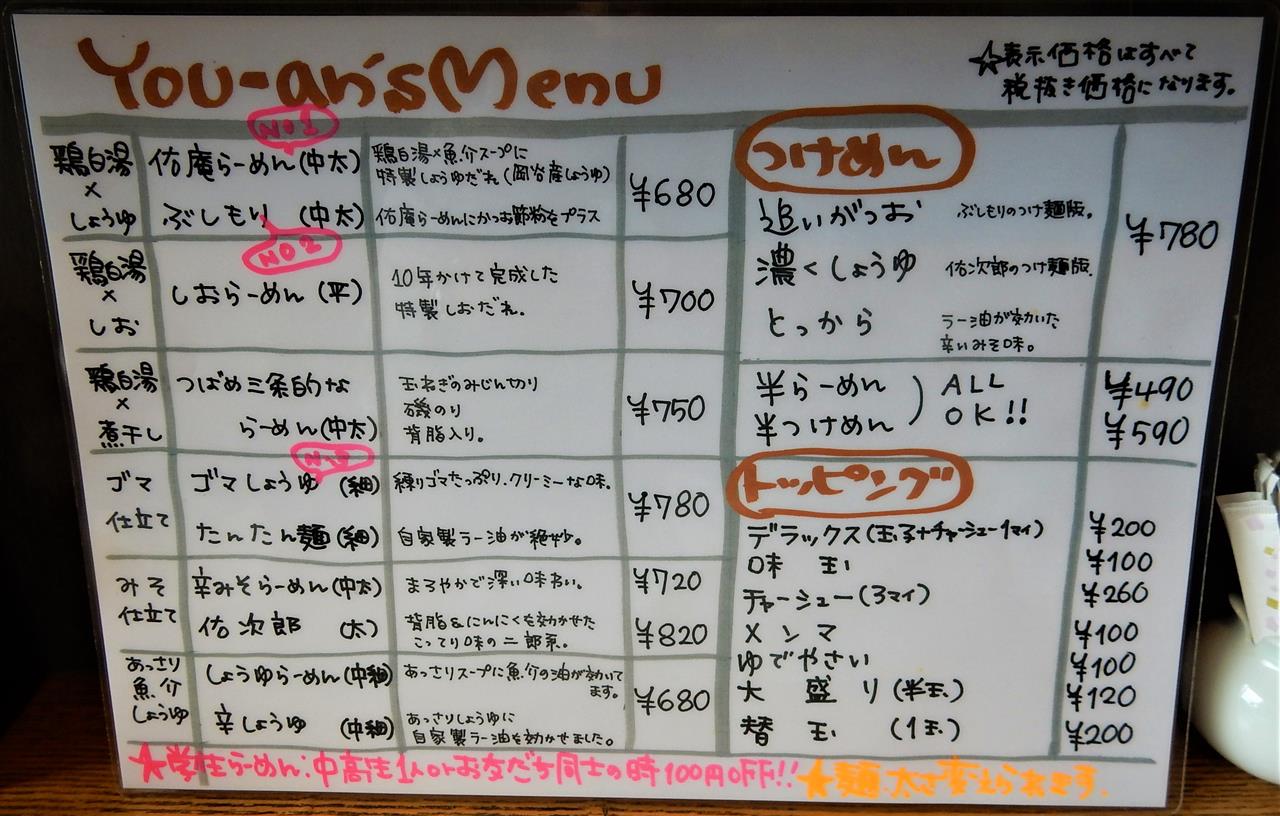 You-an's Menu
☆表示価格はすべて
税抜き価格になります。
鶏白湯
×
しょうゆ
NO1
佑庵らーめん(中太)
鶏白湯×魚介スープに
特製しょうゆだれ(岡谷産しょうゆ)
ぶしもり (中太)
佑庵らーめんにかつお節粉をプラス
¥680
鶏白湯
×
しお
NO2
しおらーめん(平)
10年かけて完成した
特製しおだれ。
¥700
鶏白湯
×
煮干し
つばめ三条的な
らーめん(中太)
玉ねぎのみじん切り
磯のり
背脂入り。
¥750
ゴマ
仕立て
ゴマしょうゆ (細)
練りゴマたっぷり.クリーミーな味.
たんたん麺(細)
自家製ラー油が絶妙。
¥780
みそ
仕立て
辛みそらーめん(中太)
まろやかで深い味わい.
¥720
佑次郎 (太)
背脂&にんにくを効かせた
こってり味の二郎系。
¥820
あっさり
魚介
しょうゆ
しょうゆらーめん(中細)
あっさりスープに魚介の油が効いて
ます。
辛しょうゆ (中細)
あっさりしょうゆに
自家製ラー油を効かせました。
¥680
つけめん
追いがつお ぶしもりのつけ麺版。
濃くしょうゆ 佑次郎のつけ麺版.
とっから ラー油が効いた
辛いみそ味。
¥780
半らーめん ¥490
半つけめん ¥590
) ALL
OK!!
トッピング
デラックス(玉子+チャーシュー1マイ) ¥200
味 玉 ¥100
チャーシュー(3マイ) ¥260
メンマ ¥100
ゆでやさい ¥100
大 盛 り(半玉) ¥120
替 玉 (1玉) ¥200
★学生らーめん:中高生1人orお友だち同士の時100円OFF!!
★麺.太さ変えられます.